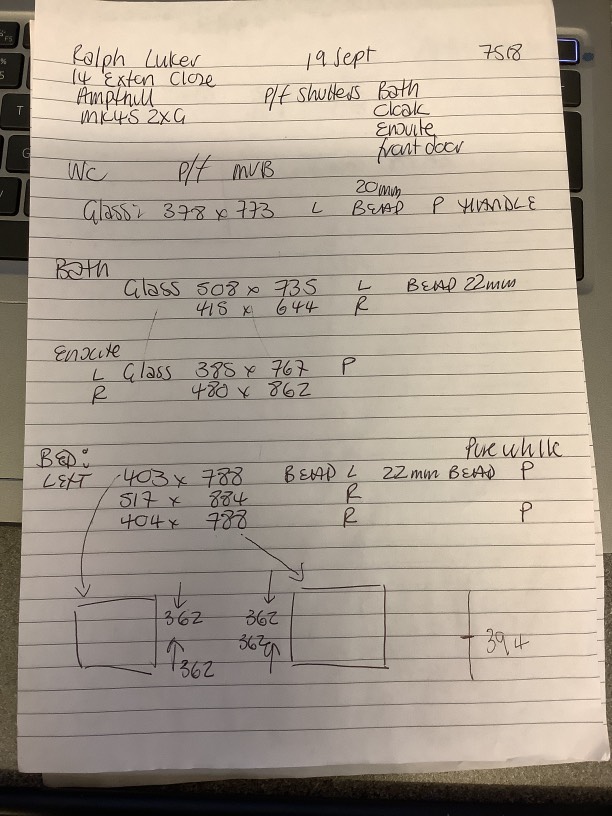 Ralph Luker 19 Sept 7518
14 Exton Close
Ampthill P/f Shutters Bath
MK45 2XG Cloak
Ensuite
front door
WC P/f MVB
20mm
Glass: 378 x 773 L BEAD P HANDLE
Bath
Glass 508 x 735 L BEAD 22mm
415 x 644 R
Ensuite
L Glass 385 x 767 P
R 480 x 862
Pure white
BED:
LEFT 403 x 788 BEAD L 22mm BEAD P
517 x 884 R
404 x 788 R P
362 362
362 394
362